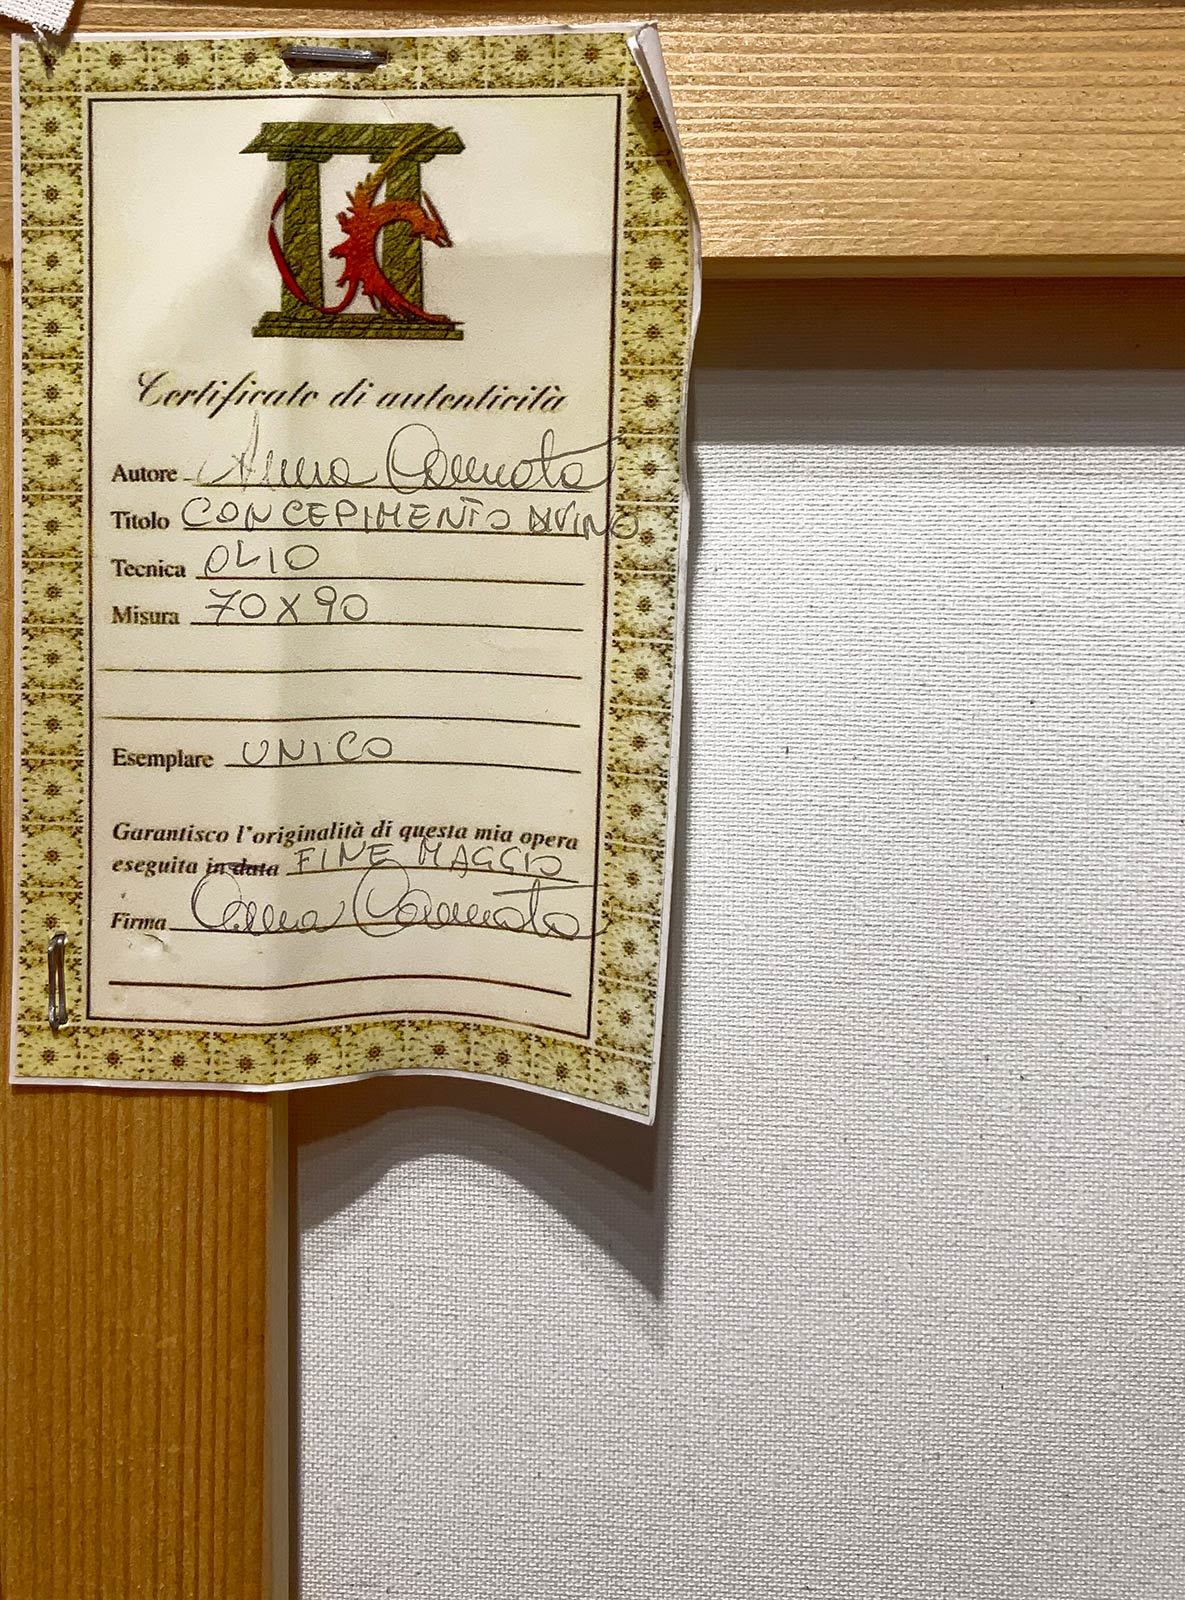 Certificato di autenticità
Autore Anna
Titolo CONCEPIMENTO DIVINO
Tecnica OLIO
Misura 70X90
Esemplare UNICO
Garantisco l'originalità di questa mia opera
eseguita in data FINE MAGGIO
Firma Anna